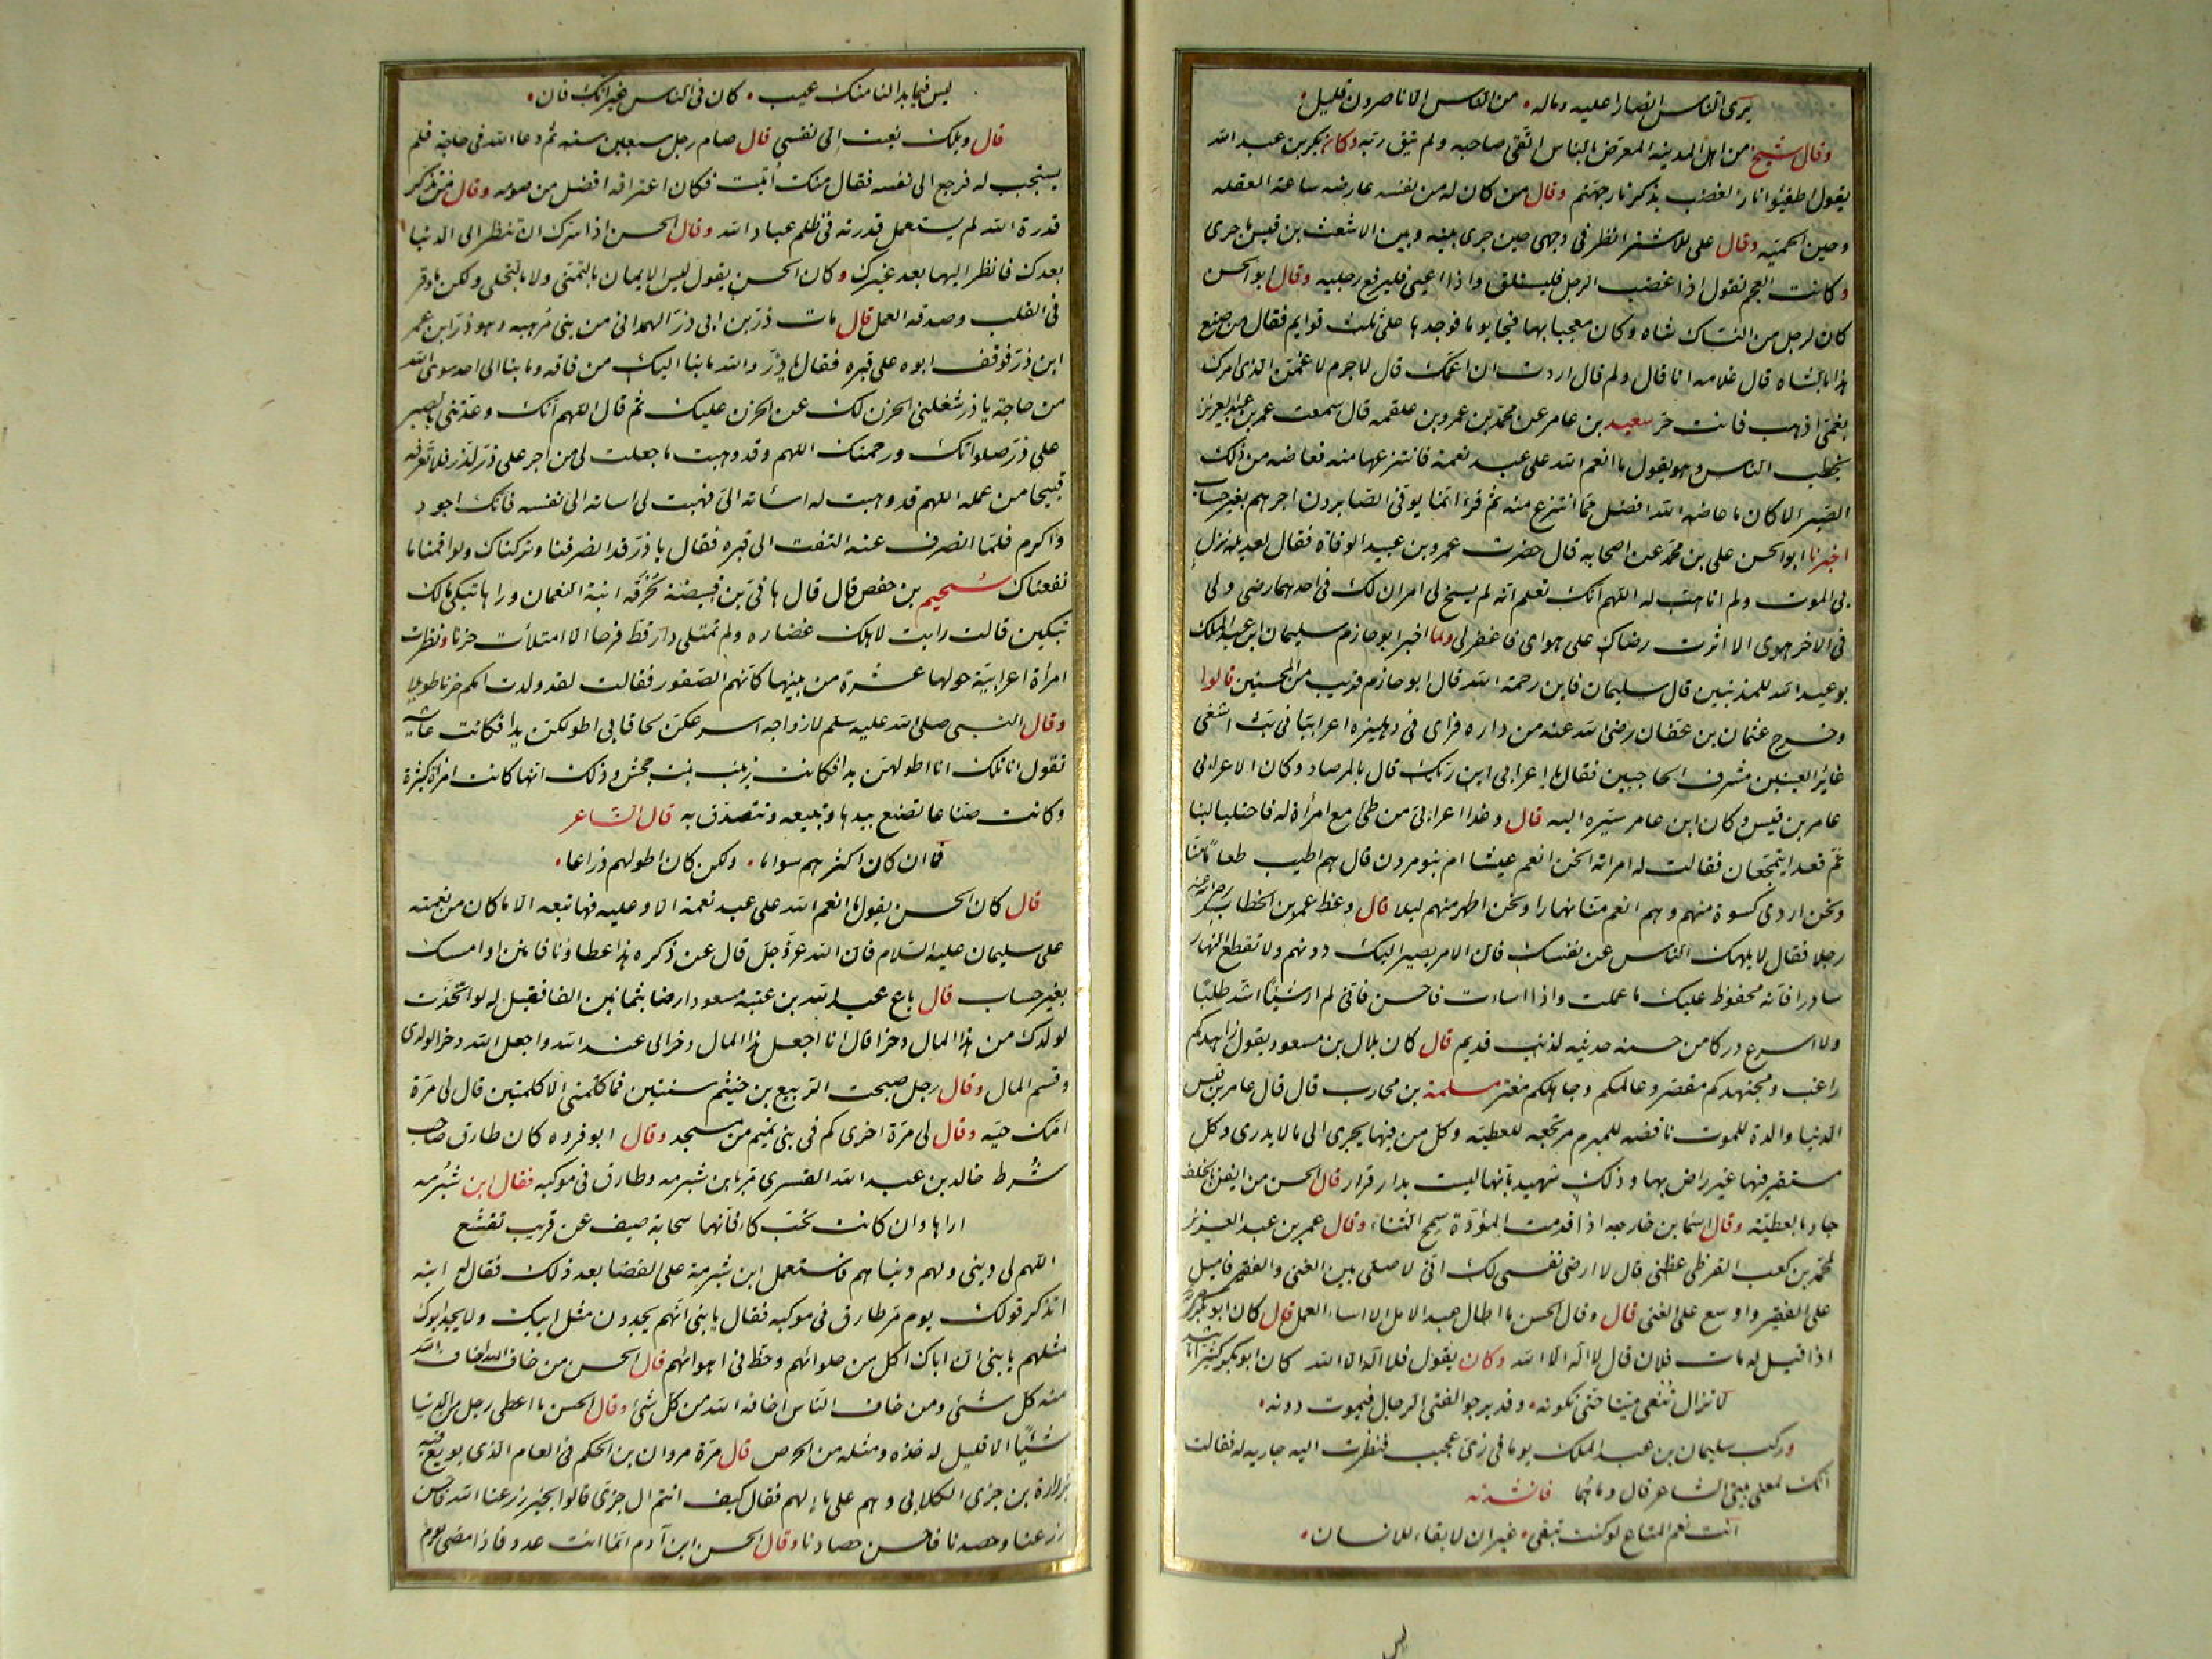 يرى الناس انصارا عليه وماله من الناس الا ناصرون قليل
وقال شيخ من اهل المدينة المعرض بالناس اتقى صاحبه ولم يتق ربه وكان بكر بن عبد الله
يقول اطفئوا نار الغضب بذكر نار جهنم وقال من كان له من نفسه عارضه ساعة العقله
وحين الحمية وقال على للاشتر انظر فى وجهى حين جرى بينه وبين الاشعث بن قيس ما جرى
وكانت العجم تقول اذا غضب الرجل فليستلق واذا اعيى فليرفع رجليه وقال ابو الحسن
كان لرجل من النساك شاه وكان معجبا بها فجا يوما فوجدها على ثلث قوايم فقال من صنع
هذا بالشاه قال غلامه انا قال ولم قال اردت ان اغمك قال لا جرم لاغمن الذى امرك
بغمى اذهب فانت حر سعيد بن عامر عن محمد بن عمرو بن علقمه قال سمعت عمر بن عبد العزيز
يخطب الناس وهو يقول ما انعم الله على عبد نعمة فانتزعها منه فعاضه من ذلك
الصبر الا كان ما عاضه الله افضل مما انتزع منه ثم قرء انما يوفى الصابرون اجرهم بغير حساب
اخبرنا ابو الحسن على بن محمد عن اصحابه قال حضرت عمرو بن عبيد الوفاة فقال لعديله نزل
بى الموت ولم اتاهب له اللهم انك تعلم انه لم يسنح لى امران لك فى احدهما رضى ولى
فى الاخر هوى الا اثرت رضاك على هواى فاغفر لى ولما اخبر ابو حازم سليمان ابن عبد الملك
بوعيد الله للمذنبين قال سليمان فاين رحمة الله قال ابو حازم قريب من المحسنين قالوا
وخرج عثمان بن عفان رضى الله عنه من داره فراى فى دهليزه اعرابيا فى بت اشغى
غائر العينين مشرف الحاجبين فقال يا اعرابى اين ربك قال بالمرصاد وكان الاعرابى
عامر بن قيس وكان ابن عامر سيره اليه قال وغدا اعرابى من طى مع امرأة له فاحتلبا لبنا
ثم قعدا يتمجعان فقالت له امراته انحن انعم عيشا ام بنو مرون قال هم اطيب طعاما منا
ونحن اردى كسوة منهم وهم انعم منا نهارا ونحن اظهر منهم ليلا قال وعظ عمر بن الخطاب رضى الله عنه
رجلا فقال لا يلهك الناس عن نفسك فان الامر يصير اليك دونهم ولا تقطع النهار
سادرا فانه محفوظ عليك ما عملت واذا اسات فاحسن فانى لم ار شيئا اشد طلبا
ولا اسرع دركا من حسنه حديثه لذنب قديم قال كان بلال بن مسعود يقول زاهدكم
راغب ومجتهدكم مقصر وعالمكم وجاهلكم مغتر مسلمة بن محارب قال قال عامر بن قيس
الدنيا والدة للموت ناقضه للمبرم مرتجعه للعطيه وكل من فيها يجرى الى ما لا يدرى وكل
مستقر فيها غير راض بها وذلك شهيد بانها ليست بدار قرار قال الحسن من ايقن بالخلف
جاد بالعطيه وقال اسما بن خارجه اذا قدمت المؤدة سمج الثناء وقال عمر بن عبد العزيز
لمحمد بن كعب القرظى عظنى قال لا ارضى نفسى لك انى لاصلى بين الغنى والفقير فاميل
على الفقير واوسع على الغنى قال وقال الحسن ما اطال عبد الامل الا اساء العمل قال كان ابو بكر
اذا قيل له مات فلان قال لا اله الا الله وكان يقول فلا اله الا الله كان ابو بكر كثيرا ما
لا تزال تنعى ميتا حتى تكونه وقد يرجو الفتى الرجال فيموت دونه
وركب سليمان بن عبد الملك يوما فى زى عجيب فنظرت اليه جاريه له فقالت
انك لمعلى ببيتى الشاعر قال وما هما فانشدته
انت نعم المتاع لو كنت تبقى غير ان لا بقاء للانسان
ليس
ليس فيما بدا لنا منك عيب كان فى الناس غير انك فان
قال ويلك نعيت الى نفسى قال صام رجل سبعين سنه ثم دعا الله فى حاجة فلم
يستجب له فرجع الى نفسه فقال منك اتيت فكان اعترافه افضل من صومه وقال من تذكر
قدرة الله لم يستعمل قدرته فى ظلم عباد الله وقال الحسن اذا سرك ان تنظر الى الدنيا
بعدك فانظر اليها بعد غيرك وكان الحسن يقول ليس الايمان بالتمنى ولا بالتحلى ولكن ما وقر
فى القلب وصدقه العمل قال مات ذر بن ابى ذر الهمدانى من بنى مرهبه وهو ذر ابن عمر
ابن ذر فوقف ابوه على قبره فقال يا ذر والله ما بنا اليك من فاقه وما بنا الى احد سوى الله
من حاجة يا ذر شغلنى الحزن لك عن الحزن عليك ثم قال اللهم انك وعدتنى بالصبر
على ذر صلواتك ورحمتك اللهم وقد وهبت ما جعلت لى من اجر على ذر لذر فلا تعرفه
قبيحا من عمله اللهم قد وهبت له اسأته الى فهبت لى اسائه الى نفسه فانك اجود
واكرم فلما انصرف عنه التفت الى قبره فقال يا ذر قد انصرفنا وتركناك ولو اقمنا ما
نفعناك سحيم بن حفص قال قال هانى بن قبيضة لحرقه ابنة النعمان وراها تبكى مالك
تبكين قالت رايت لاهلك غضاره ولم تمتلى دار قط فرحا الا امتلأت حزنا ونظرت
امراة اعرابية حولها عشرة من بنيها كانهم الصقور فقالت لقد ولدت امكم حزنا طويلا
وقال النبى صلى الله عليه سلم لازواجه اسرعكن لحاقا بى اطولكن يدا فكانت عايشه
تقول انا تلك انا اطولهن يدا فكانت زينب بنت جحش وذلك انها كانت امراة كثيرة
وكانت صناعا تصنع بيدها وتبيعه وتتصدق به قال الشاعر
فما ان كان اكثرهم سواما ولكن كان اطولهم ذراعا
قال كان الحسن يقول ما انعم الله على عبد نعمة الا وعليه فيها تبعه الا ما كان من نعمته
على سليمان عليه السلام فان الله عز وجل قال عن ذكره هذا عطاونا فامنن او امسك
بغير حساب قال باع عبد الله بن عتبه مسعود ارضا بثمانين الفا فقيل له لو اتخذت
لولدك من هذا المال دخرا قال انا اجعل هذا المال دخرا لى عند الله واجعل الله دخرا لولدى
وقسم المال وقال رجل صبحت الربيع بن خيثم سنتين فما كلمنى الا كلمتين قال لى مرة
امك حيه وقال لى مرة اخرى كم فى بنى تميم من مسجد وقال ابو فروه كان طارق صاحب
شرط خالد بن عبد الله القسرى مر بابن شبرمه وطارق فى موكبه فقال ابن شبرمه
اراها وان كانت تحب كانها سحابة صيف عن قريب تقشع
اللهم لى دينى ولهم دنياهم فاستعمل ابن شبرمة على القضا بعد ذلك فقال له ابنه
اتذكر قولك يوم مر طارق فى موكبه فقال يا بنى انهم يجدون مثل ابيك ولا يجد ابوك
مثلهم يا بنى ان اباك اكل من حلوائهم وحط فى اهوائهم قال الحسن من خاف الله اخاف الله
منه كل شئ ومن خاف الناس اخافه الله من كل شئ وقال الحسن ما اعطى رجل من الدنيا
شيئا الا قيل له خذه ومثله من الحرص قال مرة مروان بن الحكم فى العام الذى بويع فيه
بزرارة بن جزى الكلابى وهم على ما لهم فقال كيف انتم ال جزى قالوا بخير زرعنا الله فاحسن
زرعنا وحصدنا فاحسن حصادنا وقال الحسن ابن آدم انما انت عدد فاذا مضى يوم